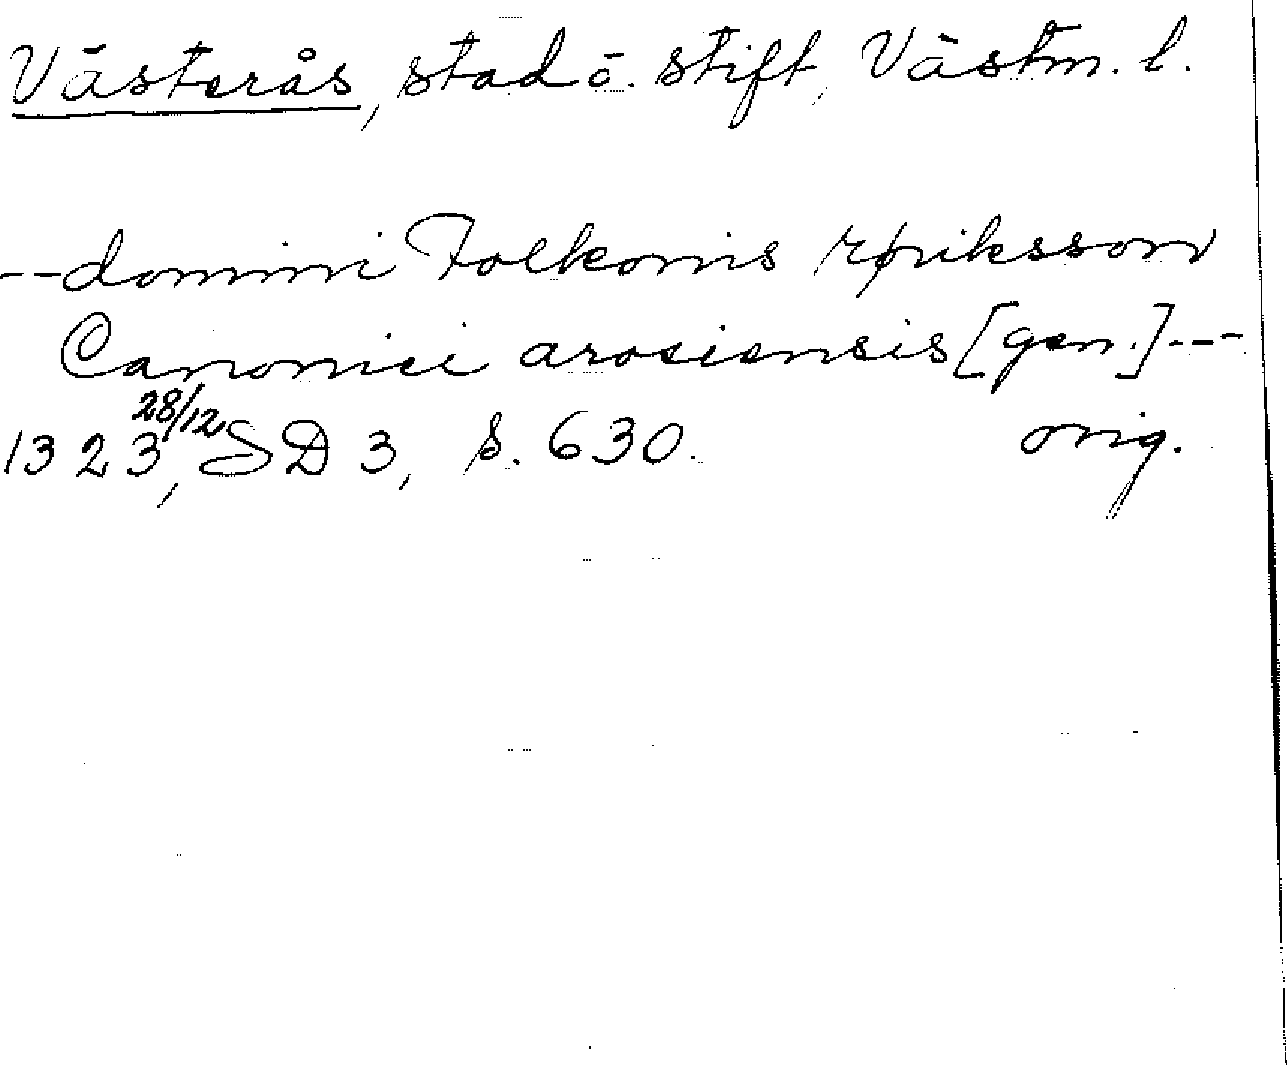 Västerås, stad o. stift, Västm. l.
--domini Folkonis røriksson
Canonici arosiensis [gen.]---
1323 28/12, SD 3, s. 630. orig.